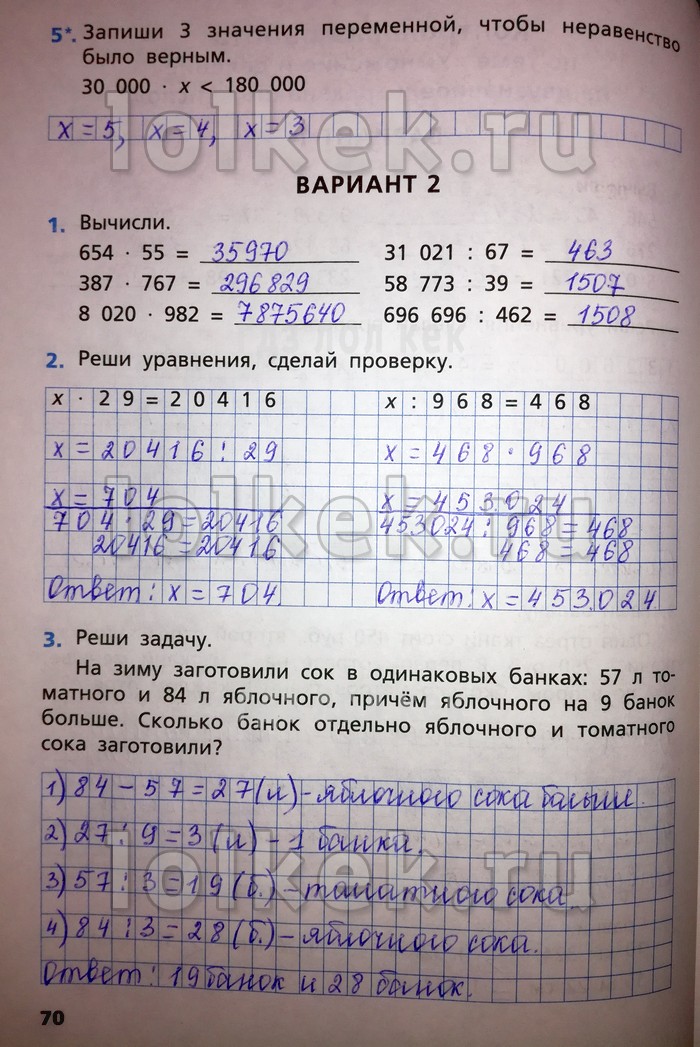 5*. Запиши 3 значения переменной, чтобы неравенство
было верным.
30 000 · x < 180 000
x = 5, x = 4, x = 3
ВАРИАНТ 2
1. Вычисли.
654 · 55 = 35970 31 021 : 67 = 463
387 · 767 = 296829 58 773 : 39 = 1507
8 020 · 982 = 7875640 696 696 : 462 = 1508
2. Реши уравнения, сделай проверку.
x · 29=20416 x : 968=468
x = 20416 : 29 x = 468 · 968
x = 704 x = 453024
704 : 29 = 20416 453024 : 968 = 468
20416 = 20416 468 = 468
Ответ: x = 704 Ответ: x = 453024
3. Реши задачу.
На зиму заготовили сок в одинаковых банках: 57 л то-
матного и 84 л яблочного, причём яблочного на 9 банок
больше. Сколько банок отдельно яблочного и томатного
сока заготовили?
1) 84 – 57 = 27 (л) – яблочного сока больше.
2) 27 : 9 = 3 (л) – 1 банка.
3) 57 : 3 = 19 (б.) – томатного сока.
4) 84 : 3 = 28 (б.) – яблочного сока.
Ответ: 19 банок и 28 банок.
70
lolkek.ru
lolkek.ru
lolkek.ru